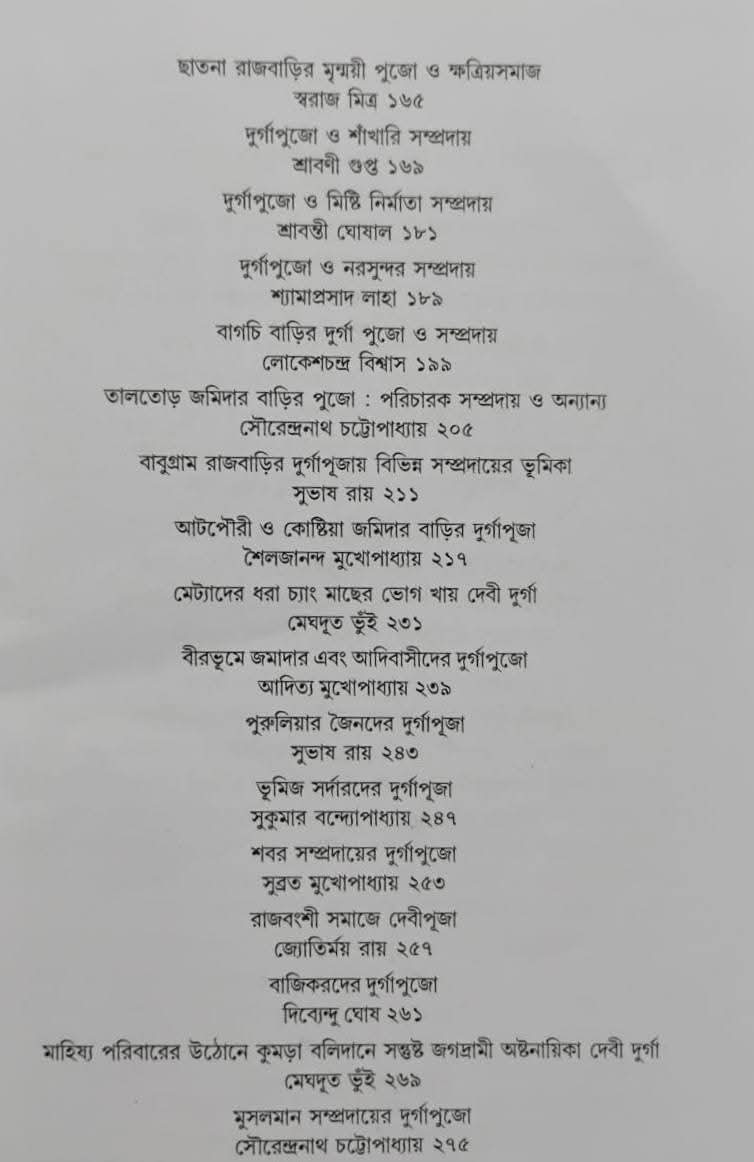 ছাতনা রাজবাড়ির মৃন্ময়ী পুজো ও ক্ষত্রিয়সমাজ
স্বরাজ মিত্র ১৬৫
দুর্গাপুজো ও শাঁখারি সম্প্রদায়
শ্রাবণী গুপ্ত ১৬৯
দুর্গাপুজো ও মিষ্টি নির্মাতা সম্প্রদায়
শ্রাবন্তী ঘোষাল ১৮১
দুর্গাপুজো ও নরসুন্দর সম্প্রদায়
শ্যামাপ্রসাদ লাহা ১৮৯
বাগচি বাড়ির দুর্গা পুজো ও সম্প্রদায়
লোকেশচন্দ্র বিশ্বাস ১৯৯
তালতোড় জমিদার বাড়ির পুজো : পরিচারক সম্প্রদায় ও অন্যান্য
সৌরেন্দ্রনাথ চট্টোপাধ্যায় ২০৫
বাবুগ্রাম রাজবাড়ির দুর্গাপূজায় বিভিন্ন সম্প্রদায়ের ভূমিকা
সুভাষ রায় ২১১
আটপৌরী ও কোষ্টিয়া জমিদার বাড়ির দুর্গাপূজা
শৈলজানন্দ মুখোপাধ্যায় ২১৭
মেট্যাদের ধরা চ্যাং মাছের ভোগ খায় দেবী দুর্গা
মেঘদূত ভুঁই ২৩১
বীরভূমে জমাদার এবং আদিবাসীদের দুর্গাপুজো
আদিত্য মুখোপাধ্যায় ২৩৯
পুরুলিয়ার জৈনদের দুর্গাপূজা
সুভাষ রায় ২৪৩
ভূমিজ সর্দারদের দুর্গাপূজা
সুকুমার বন্দ্যোপাধ্যায় ২৪৭
শবর সম্প্রদায়ের দুর্গাপুজো
সুব্রত মুখোপাধ্যায় ২৫৩
রাজবংশী সমাজে দেবীপূজা
জ্যোতির্ময় রায় ২৫৭
বাজিকরদের দুর্গাপুজো
দিব্যেন্দু ঘোষ ২৬১
মাহিষ্য পরিবারের উঠোনে কুমড়া বলিদানে সন্তুষ্ট জগদ্রামী অষ্টনায়িকা দেবী দুর্গা
মেঘদূত ভুঁই ২৬৯
মুসলমান সম্প্রদায়ের দুর্গাপুজো
সৌরেন্দ্রনাথ চট্টোপাধ্যায় ২৭৫